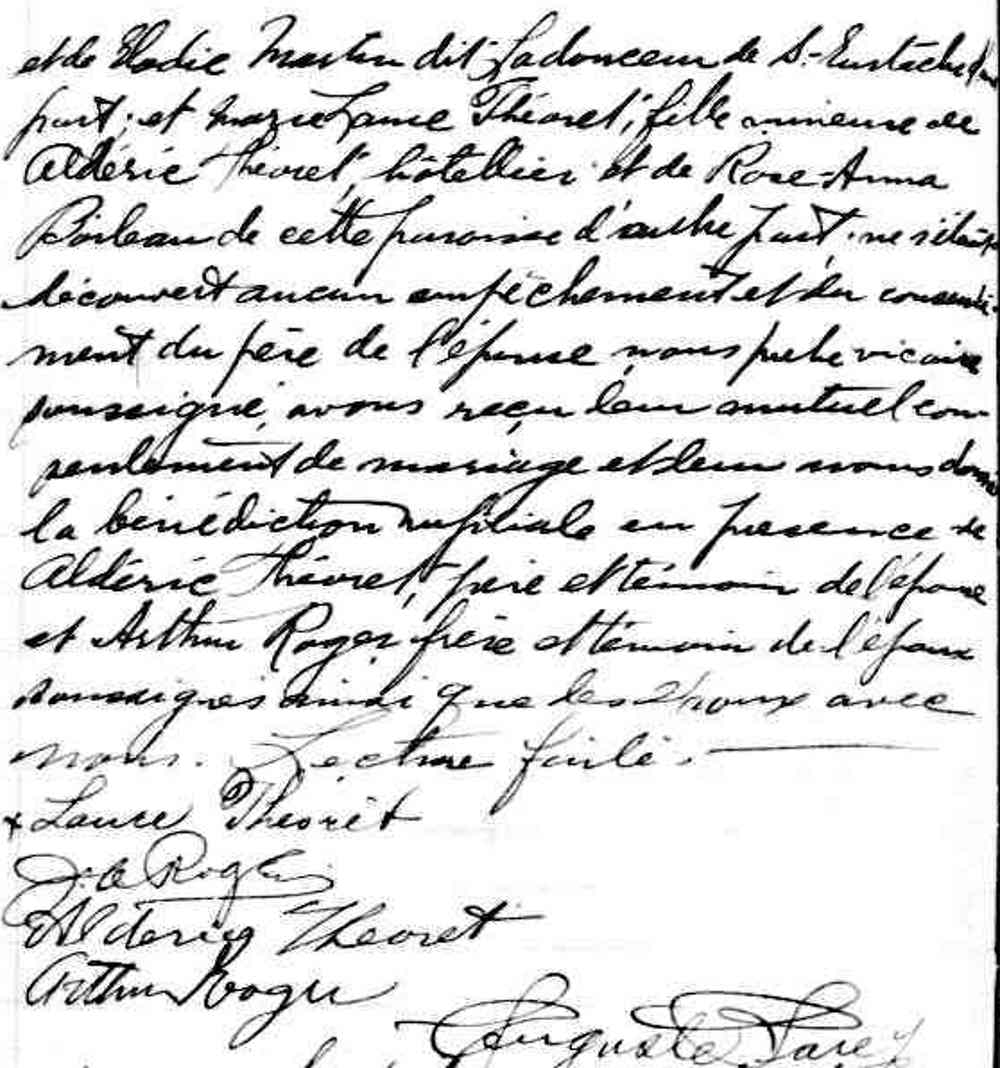 et de Elodie Martin dit Ladouceur de S.-Eustache d'une
part; et Marie Laure Théoret, fille mineure de
Aldéric Théoret, hôtellier et de Rose-Anna
Boileau de cette paroisse d'autre part. ne s'étant
découvert aucun empêchement et du consente-
ment du père de l'épouse, nous prêtre vicaire
soussigné, avons reçu leur mutuel con-
sentement de mariage et leur avons donné
la bénédiction nuptiale en présence de
Aldéric Théoret, père et témoin de l'épouse
et Arthur Roger frère et témoin de l'époux
soussignés ainsi que les époux avec
nous. Lecture faite.
+ Laure Théorêt
Roger
Alderic Theoret
Arthur Roger
Auguste